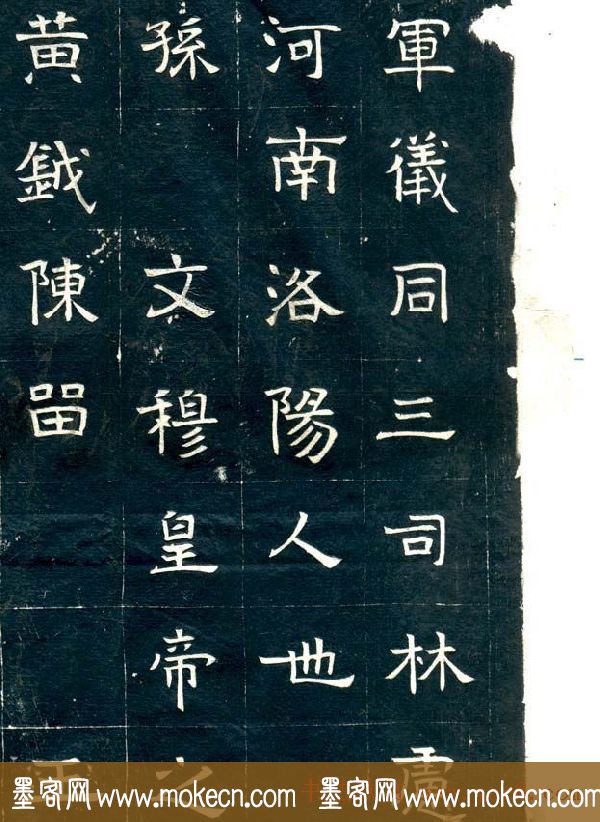 軍儀同三司林慮
河南洛陽人也
孫文穆皇帝之
黃鉞陳留王
墨客网 www.mokecn.com 墨客网 www.mokecn.com